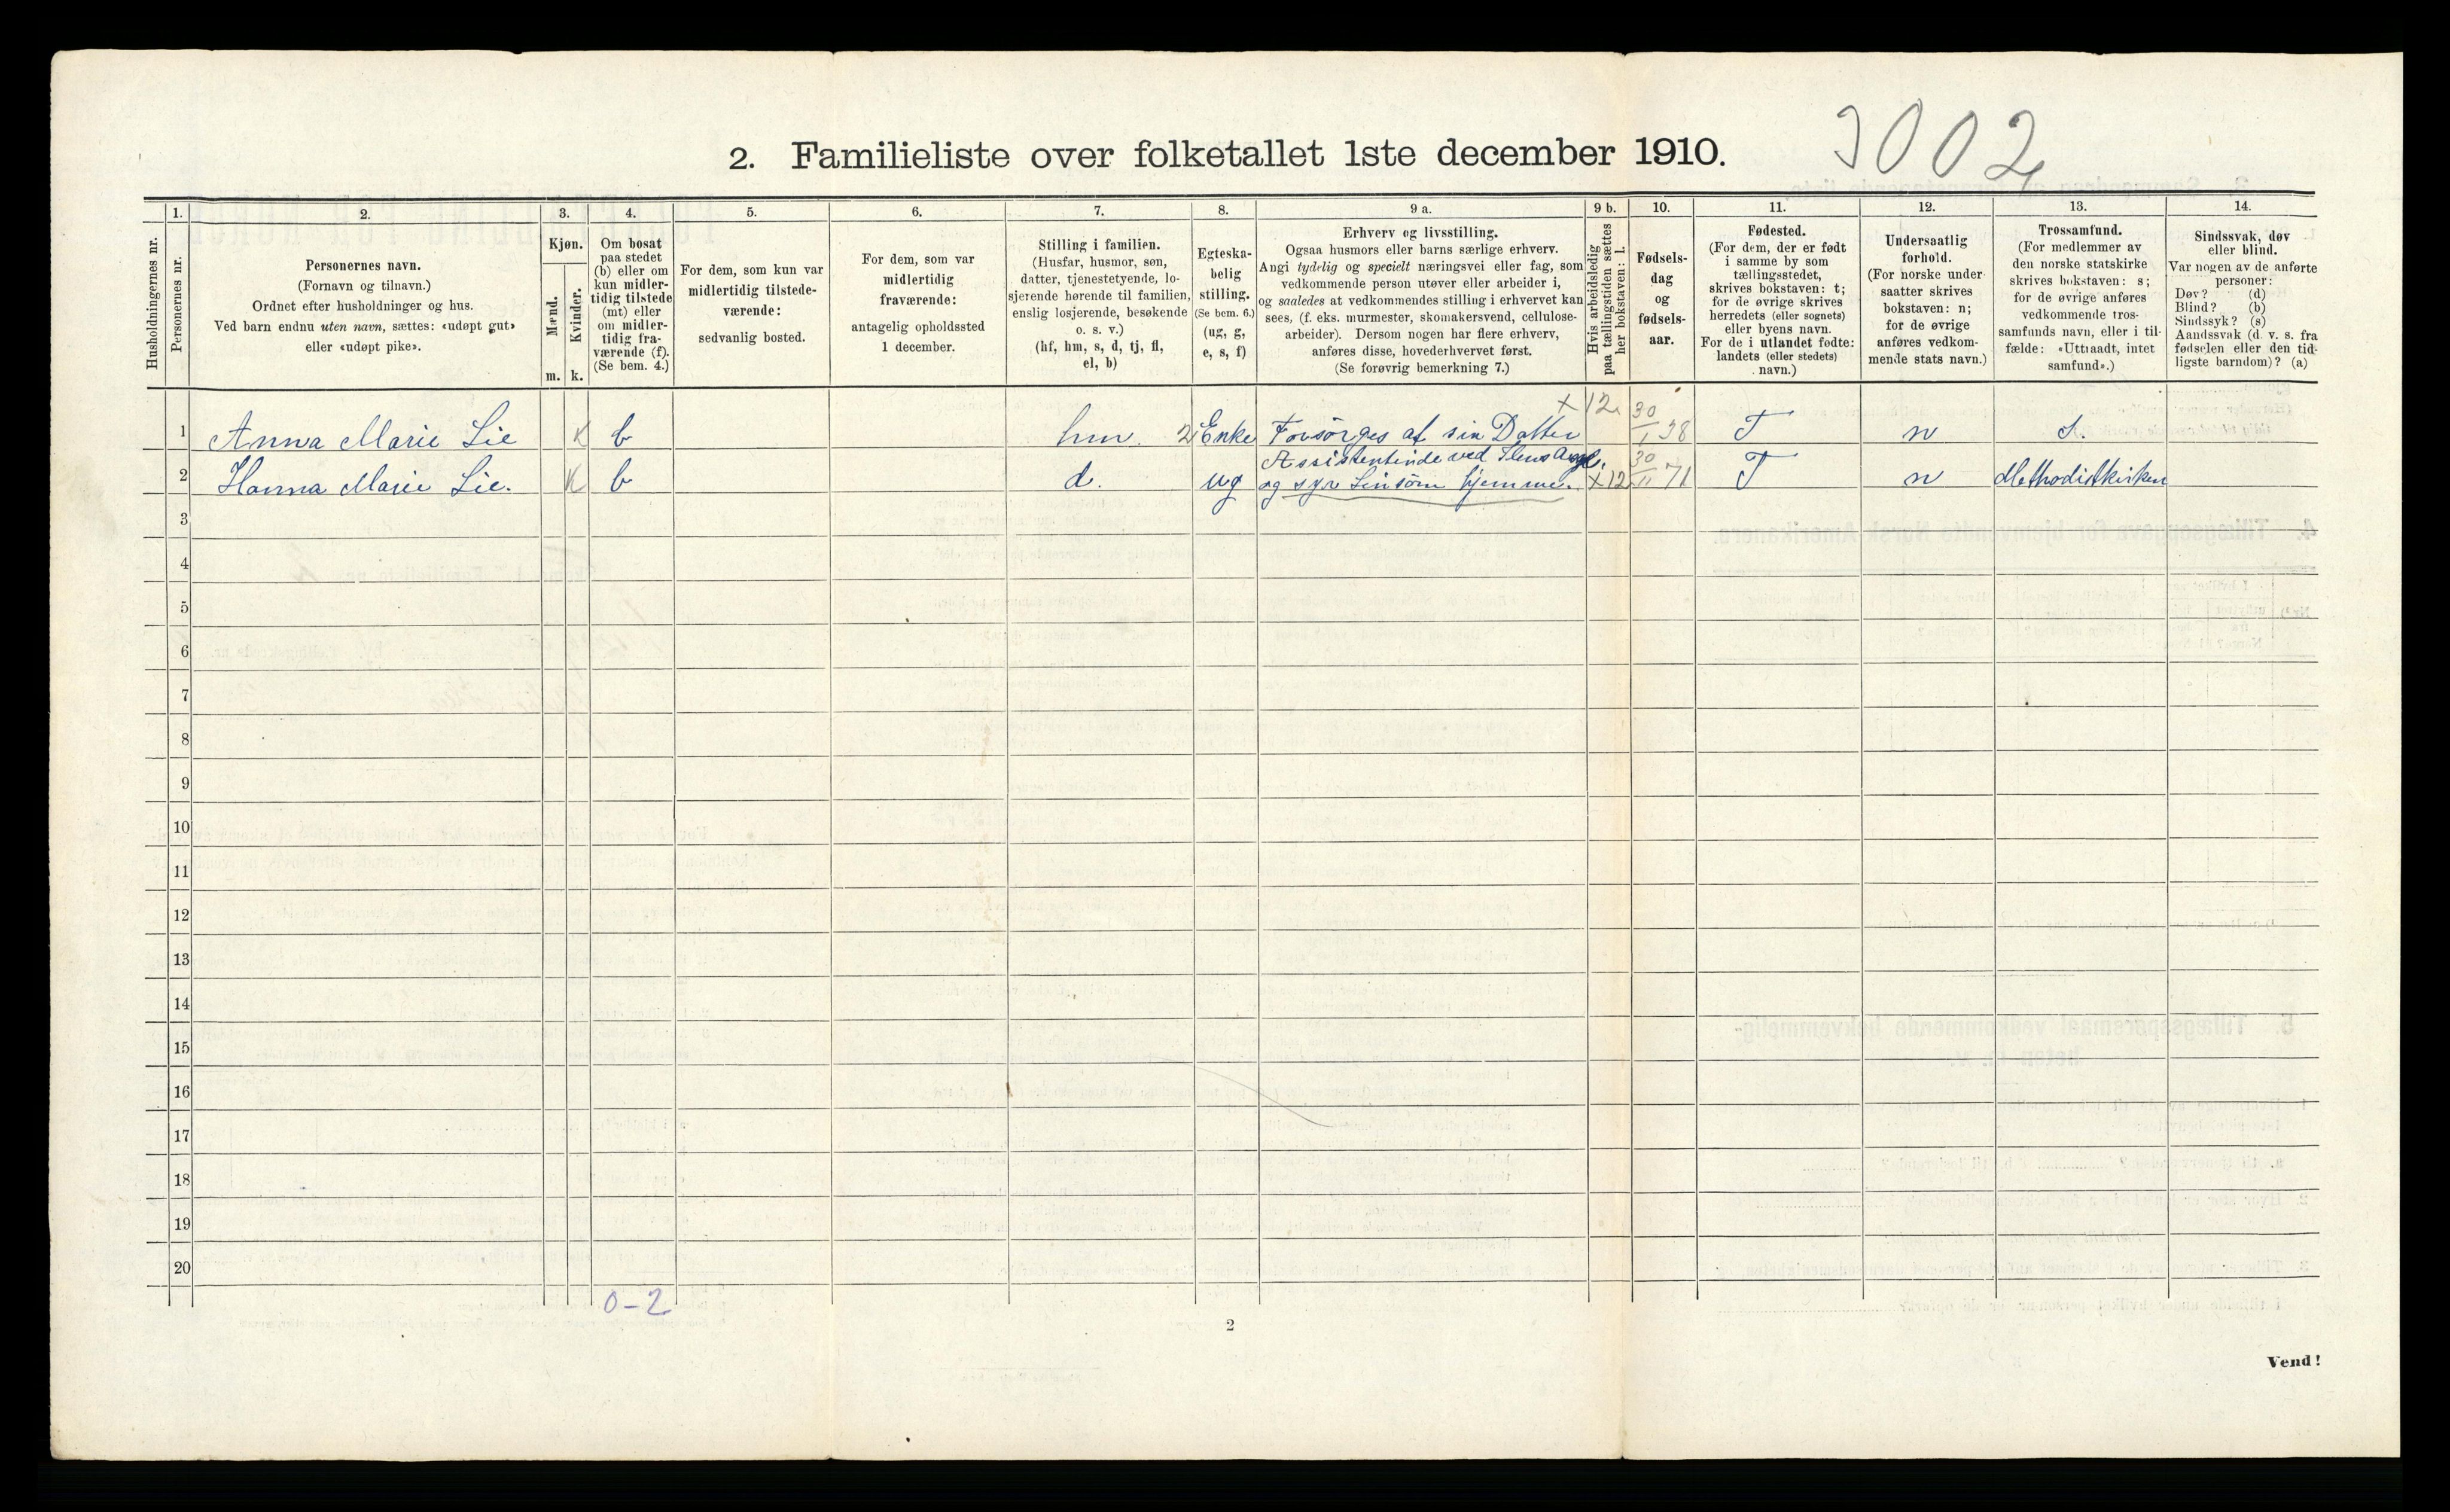 3002
2. Familieliste over folketallet 1ste december 1910.
Husholdningernes nr.
1.
Personernes nr.
2.
Personernes navn.
(Fornavn og tilnavn.)
Ordnet efter husholdninger og hus.
Ved barn endnu uten navn, sættes: «udøpt gut»
eller «udøpt pike».
3.
Kjøn.
Mænd.
Kvinder.
m. k.
4.
Om bosat
paa stedet
(b) eller om
kun midler-
tidig tilstede
(mt) eller
om midler-
tidig fra-
værende (f).
(Se bem. 4.)
5.
For dem, som kun var
midlertidig tilstede-
værende:
sedvanlig bosted.
6.
For dem, som var
midlertidig
fraværende:
antagelig opholdssted
1 december.
7.
Stilling i familien.
(Husfar, husmor, søn,
datter, tjenestetyende, lo-
sjerende hørende til familien,
enslig losjerende, besøkende
o. s. v.)
(hf, hm, s, d, tj, fl,
el, b)
8.
Egteska-
belig
stilling.
(Se bem. 6.)
(ug, g,
e, s, f)
9 a.
Erhverv og livsstilling.
Ogsaa husmors eller barns særlige erhverv.
Angi tydelig og specielt næringsvei eller fag, som
vedkommende person utøver eller arbeider i,
og saaledes at vedkommendes stilling i erhvervet kan
sees, (f. eks. murmester, skomakersvend, cellulose-
arbeider). Dersom nogen har flere erhverv,
anføres disse, hovederhvervet først.
(Se forøvrig bemerkning 7.)
9 b.
Hvis arbeidsledig
paa tællingstiden sættes
her bokstaven: l.
10.
Fødsels-
dag
og
fødsels-
aar.
11.
Fødested.
(For dem, der er født
i samme by som
tællingsstedet,
skrives bokstaven: t;
for de øvrige skrives
herredets (eller sognets)
eller byens navn.
For de i utlandet fødte:
landets (eller stedets)
navn.)
12.
Undersaatlig
forhold.
(For norske under-
saatter skrives
bokstaven: n;
for de øvrige
anføres vedkom-
mende stats navn.)
13.
Trossamfund.
(For medlemmer av
den norske statskirke
skrives bokstaven: s;
for de øvrige anføres
vedkommende tros-
samfunds navn, eller i til-
fælde: «Uttraadt, intet
samfund».)
14.
Sindssvak, døv
eller blind.
Var nogen av de anførte
personer:
Døv? (d)
Blind? (b)
Sindssyk? (s)
Aandssvak (d. v. s. fra
fødselen eller den tid-
ligste barndom)? (a)
1 Anna Marie Lie K b hm. 2 Enke Forsørges af sin Datter x 12 30/1 38 T n S.
2 Hanna Marie Lie. K b d. ug Assistentinde ved
og syr Linsøm hjemme. x12 30/11 71 T n Methodistkirken
3
4
5
6
7
8
9
10
11
12
13
14
15
16
17
18
19
20
0-2
2
Vend!